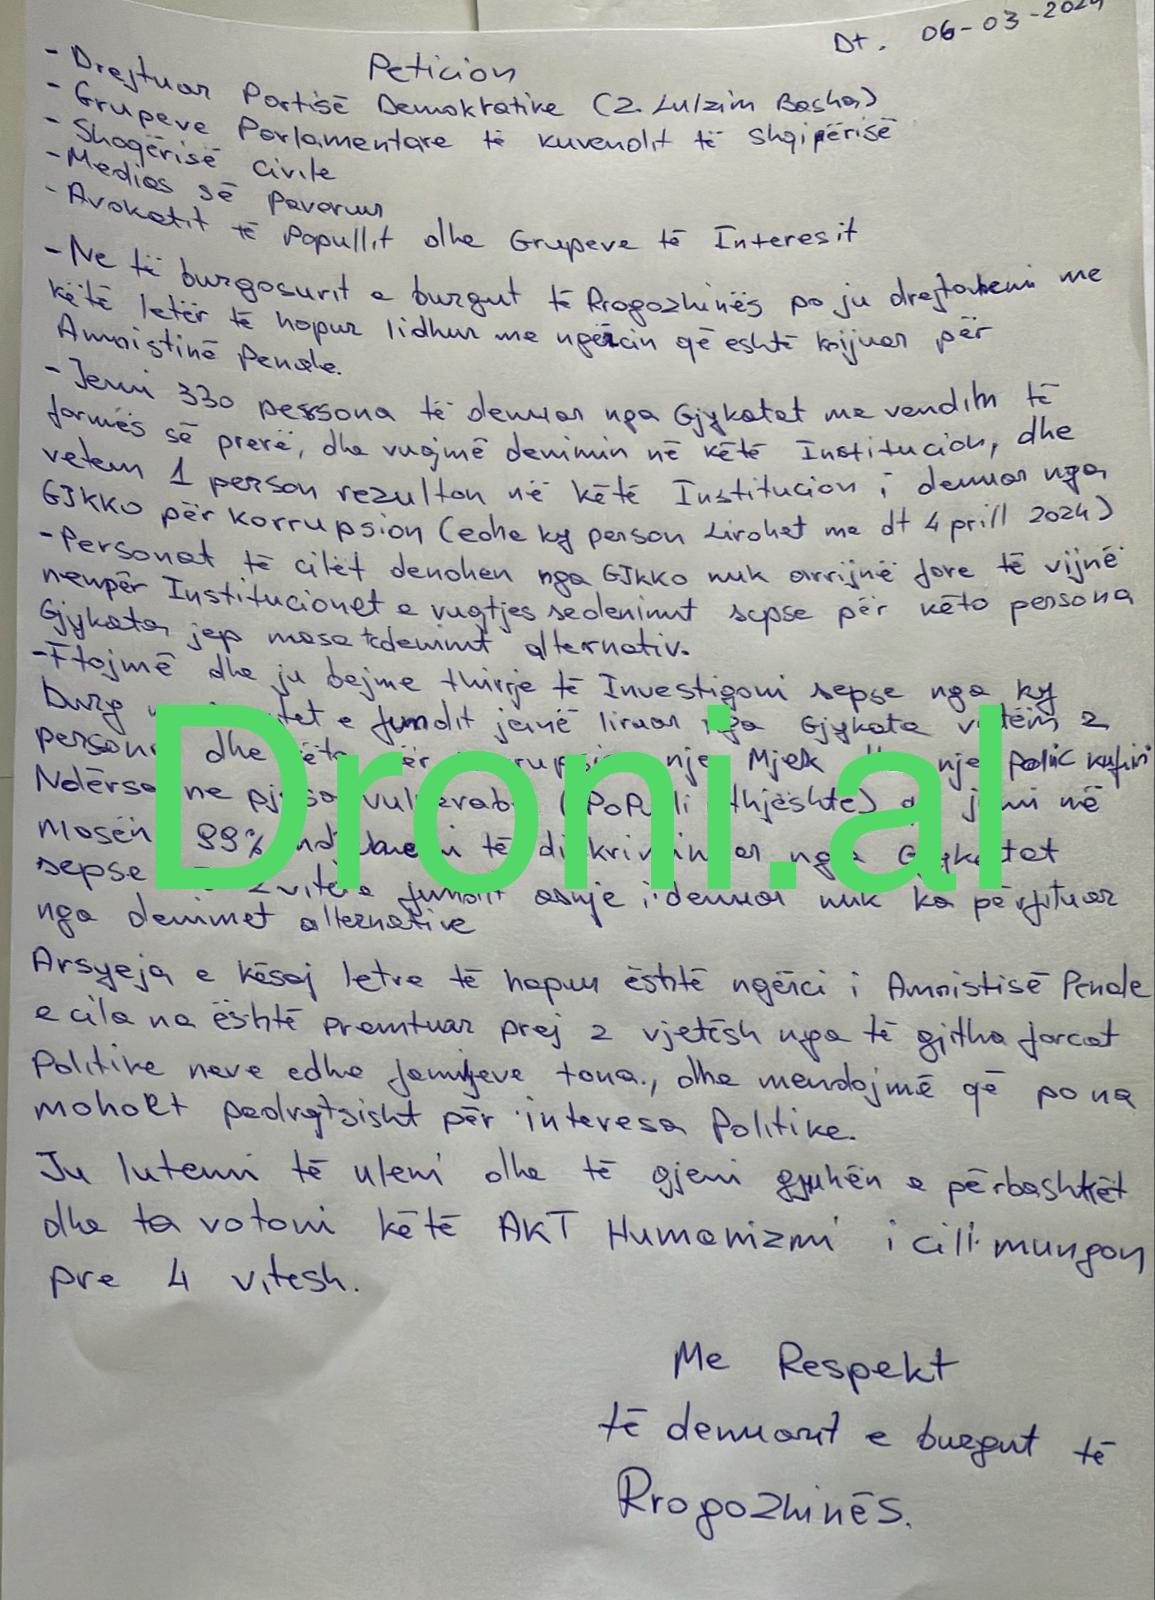 Dt. 06-03-2024
Peticion
- Drejtuar Partisë Demokratike (Z. Lulzim Basha)
- Grupeve Parlamentare të kuvendit të Shqipërisë
- Shoqërisë civile
- Medias së Pavarur
- Avokatit të Popullit dhe Grupeve të Interesit
- Ne të burgosurit e burgut të Rrogozhinës po ju drejtohemi me
këtë letër të hapur lidhur me ngërcin që eshtë krijuar për
Amnistinë Penale.
- Jemi 330 persona të denuar nga Gjykatat me vendim të
formës së prerë, dhe vuajmë denimin në këtë Institucion, dhe
vetem 1 person rezulton në këtë Institucion i denuar nga
GJKKO për korrupsion (edhe ky person lirohet me dt 4 prill 2024)
- Personat të cilët denohen nga GJKKO nuk arrijnë fare të vijnë
nenpër Institucionet e vuajtjes sedenimit sepse për këto persona
Gjykata jep masat denimit alternativ.
- Ftojmë dhe ju bejme thirrje të Investigoni sepse nga ky
burg e fundit janë liruar nga Gjykata vetëm 2
persona dhe nje Mjek nje polic kufiri
Ndërsa ne pjesa (Populli thjështe) që jemi në
masën 99% të diskriminuar nga Gjykatat
sepse 2 vitet e fundit asnje i denuar nuk ka përfituar
nga denimet alternative
Arsyeja e kësaj letre të hapur është ngërci i Amnistisë Penale
e cila na është premtuar prej 2 vjetësh nga të gjitha forcat
Politike neve edhe familjeve tona, dhe mendojmë që po na
mohoet padrejtsisht për interesa Politike.
Ju lutemi të uleni dhe të gjeni gjuhën e përbashkët
dhe ta votoni këtë AKT Humanizmi i cili mungon
pre 4 vitesh.
Me Respekt
të denuarit e burgut të
Rrogozhinës.
Droni.al